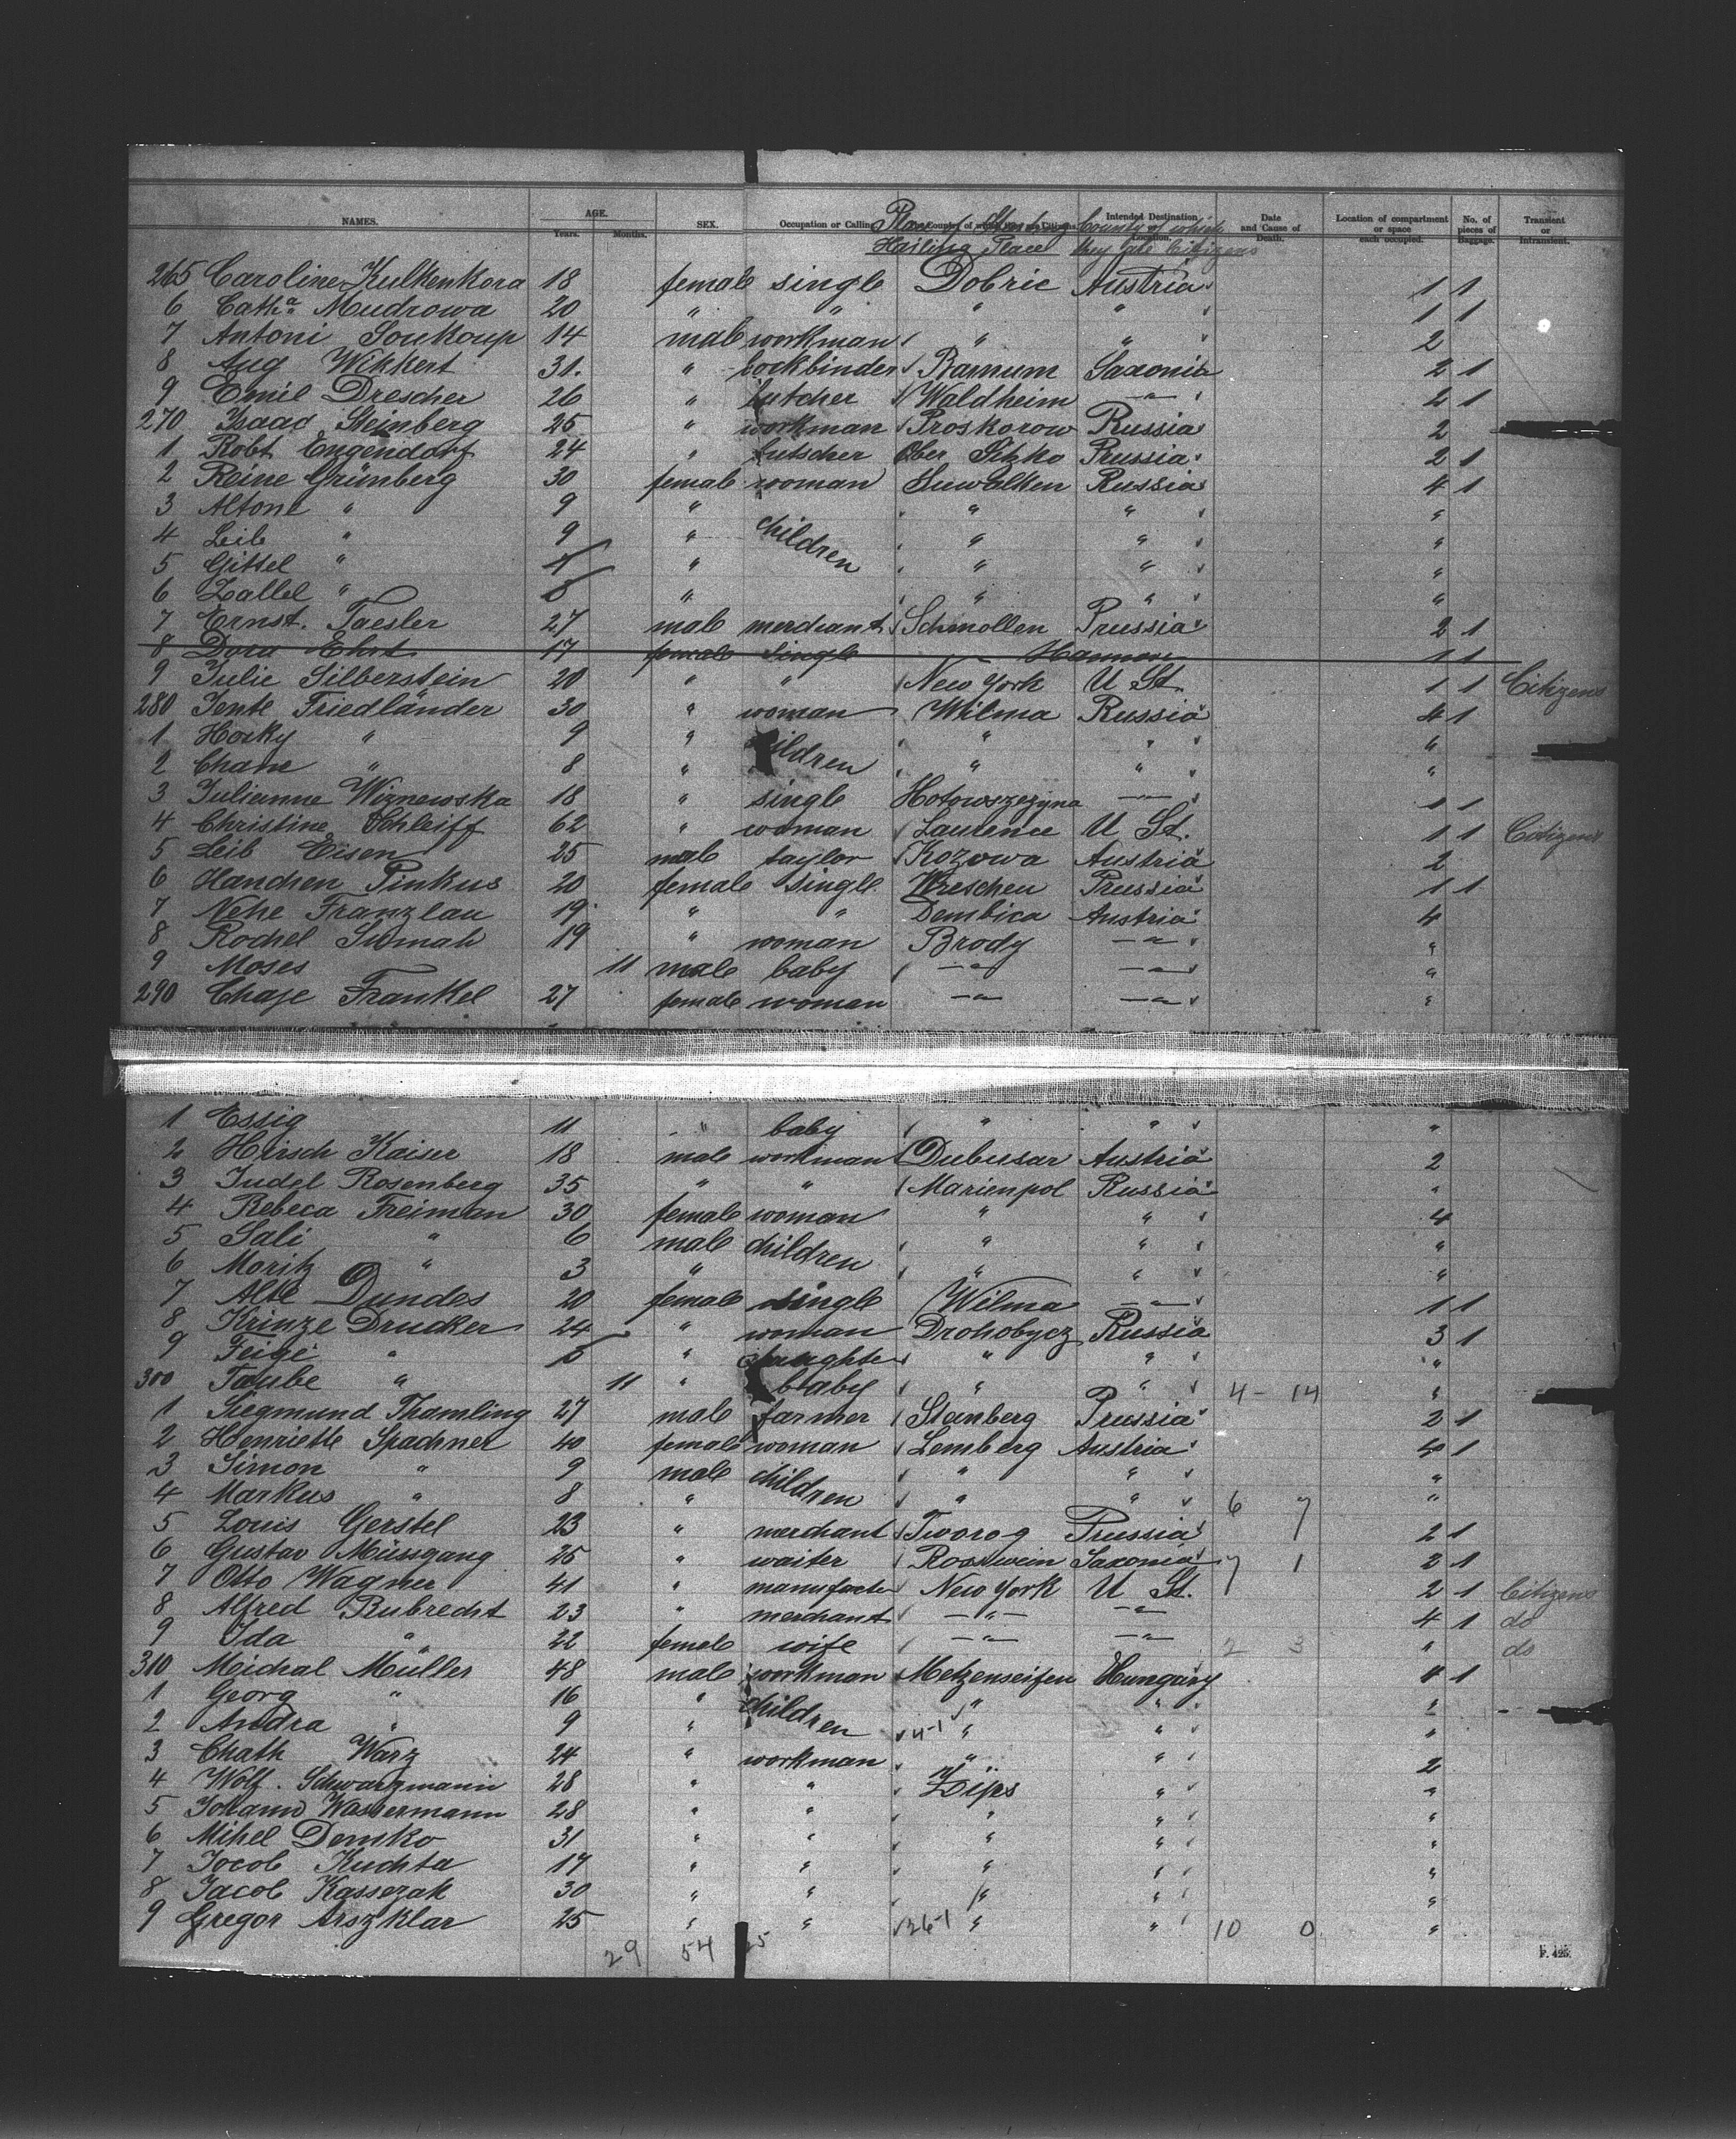 NAMES. AGE. Years. Months. SEX. Occupation or Calling Intended Destination Date and Cause of Death. Location of compartment or space each occupied. No. of pieces of Baggage. Transient or Intransient.
Hailing Place County of which they are Citizens
265 Caroline Kulkenkora 18 female single Dobric Austria 1 1
6 Catha Mudrowa 20 " " " " 1 1
7 Antoni Soukoup 14 male workman " " 2
8 Aug Wikkert 31. " bookbinder Ramum Saxonia 2 1
9 Emil Drescher 26 " butcher Waldheim —"— 2 1
270 Isaac Steinberg 25 " workman Proskorow Russia 2
1 Robt Engendorf 24 " butscher Ober Sitzko Prussia 2 1
2 Reine Grünberg 30 female woman Suwalken Russia 4 1
3 Altone " 9 " children " " "
4 Leib " 9 " " " "
5 Gittel " " " " "
6 Zallel " " " " "
7 Ernst. Taesler 27 male merchant Schmollen Prussia 2 1
8 Dora Ehrt 17 female single Hannov 1 1
9 Julie Silberstein 20 " " New York U St. 1 1 Citizens
280 Jente Friedländer 30 " woman Wilma Russia 4 1
1 Hocky " 9 " children " " "
2 Chane " 8 " " " "
3 Julianne Wiznewska 18 " single Hotowszezyna —"— 1 1
4 Christine Schleiff 62 " woman Laurence U St. 1 1 Citizens
5 Leib Eisen 25 male taylor Kozowa Austria 2
6 Handhen Pinkus 20 female single Wreschen Prussia 1 1
7 Nehe Franzlau 19 " " Dembica Austria 4
8 Rochel Sumah 19 " woman Brody —"— "
9 Moses 11 male baby —"— —"— "
290 Chaje Frankel 27 female woman —"— —"— "
1 Essig 11 " baby " " "
2 Hirsch Kaiser 18 male workman Dubusar Austria 2
3 Judel Rosenberg 35 " " Marienpol Russia "
4 Rebeca Freiman 30 female woman " " 4
5 Sali " 6 male children " " "
6 Moritz " 3 " " " "
7 Alte Dundes 20 female single Wilma —"— 1 1
8 Krinze Drucker 24 " woman Drohobycz Russia 3 1
9 Feige " " daughter " " "
300 Taube " 11 " baby " " 4 - 14 "
1 Siegmund Thomling 27 male farmer Stanberg Prussia 2 1
2 Henriette Spachner 40 female woman Lemberg Austria 4 1
3 Simon " 9 male children " " "
4 Markus " 8 " " " 6 7 "
5 Louis Gerstel 23 " merchant Tworog Prussia 2 1
6 Gustav Müssgang 25 " waiter Rosswein Saxonia 7 1 2 1
7 Otto Wagner 41 " manufacter New York U St. 2 1 Citizens
8 Alfred Rubrecht 23 " merchant —"— —"— 4 1 do
9 Ida " 22 female wife —"— —"— 2 3 " do
310 Michal Müller 48 male workman Metzenseifen Hungary 4 1
1 Georg " 16 " children " " "
2 Andra " 9 " 4-1 " " "
3 Chath Warz 24 " workman " " 2
4 Wolf. Schwarzmann 28 " " Zips " "
5 Johann Wassermann 28 " " " " "
6 Mihel Demko 31 " " " " "
7 Jocob Kuchta 17 " " " " "
8 Jacob Kassezak 30 " " " " "
9 Gregor Arszklar 25 " " 26-1 " " 10 0 "
29 54 25
F. 425.